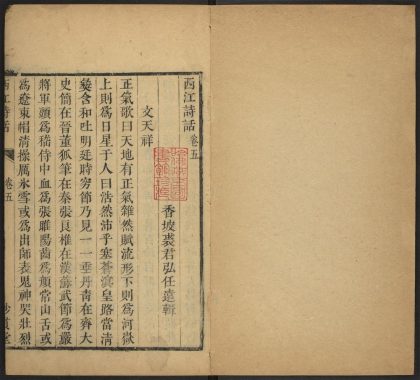 西江詩話 卷五
香坡裘君弘任遠輯
文天祥
正氣歌曰天地有正氣雜然賦流形下則爲河嶽
上則爲日星于人曰浩然沛乎塞蒼溟皇路當清
夷含和吐明廷時窮節乃見一一垂丹青在齊太
史簡在晉董狐筆在秦張良椎在漢蘇武節爲嚴
將軍頭爲嵇侍中血爲張睢陽齒爲顏常山舌或
爲遼東帽清操厲冰雪或爲出師表鬼神哭壯烈
西江詩話 卷五
妙貫堂